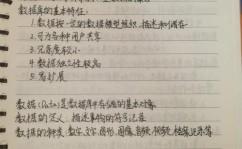 数据库的基本特征:
1. 数据按一定的数据模型组织、描述和储存
2. 可为各种用户共享
3. 冗余度较小
4. 数据独立性较高
5. 易扩展
数据(Data)是数据库中存储的基本对象
数据的定义: 描述事物的符号记录
数据的种类: 数字、文字、图形、图像、音频、视频、档案记录等